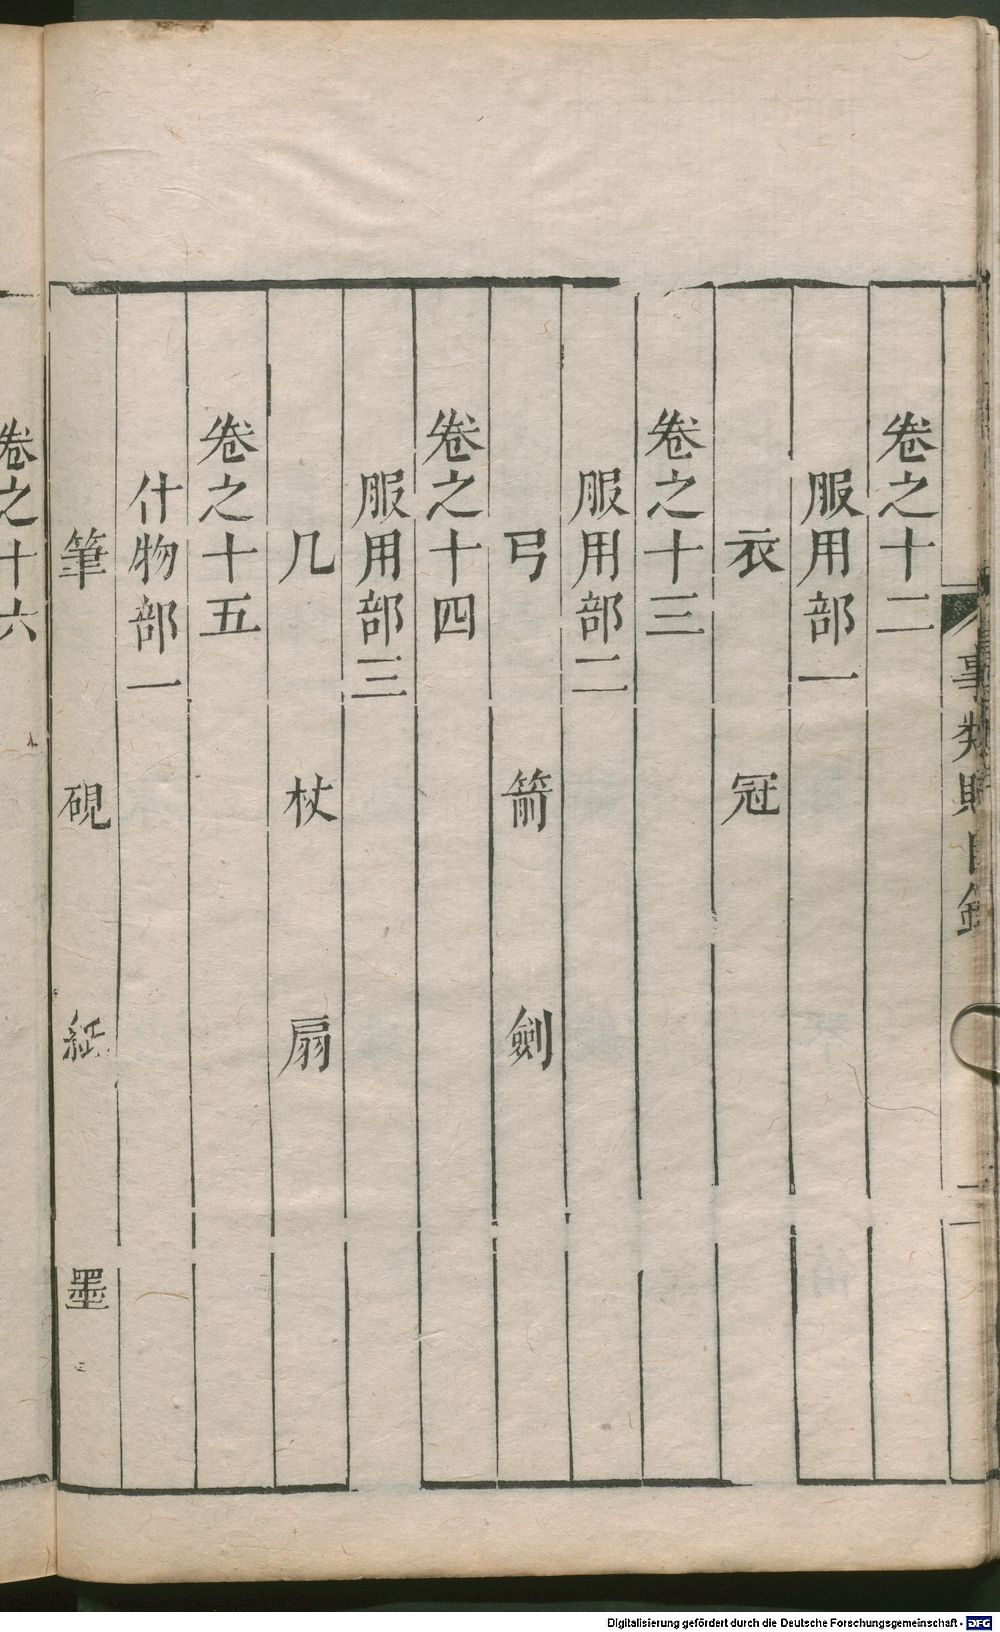 事類賦目錄
二
卷之十二
服用部一
衣 冠
卷之十三
服用部二
弓 箭 劍
卷之十四
服用部三
几 杖 扇
卷之十五
什物部一
筆 硯 紙 墨
卷之十六
Digitalisierung gefördert durch die Deutsche Forschungsgemeinschaft - DFG